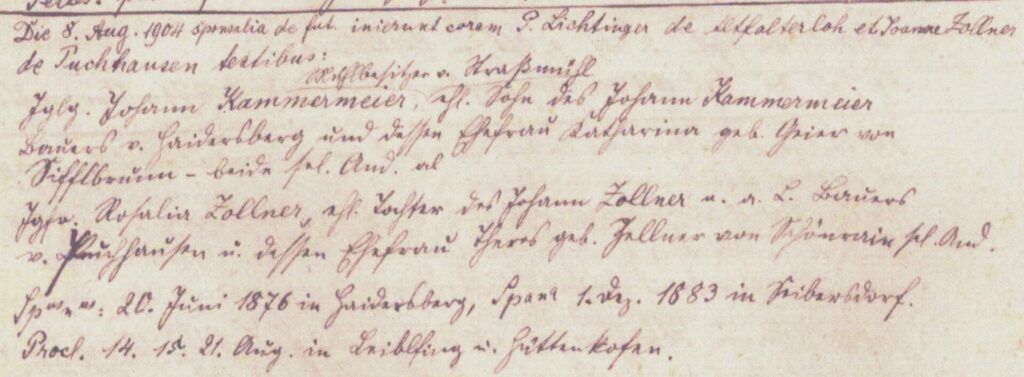 Die 8. Aug. 1904 sponsalia de fut. inierunt coram P. Lichtinger de Altfalterloh et Joanne Zollner
de Puchhausen testibus:
Mühlbesitzer v. Straßmühl
Jglg. Johann Kammermeier, ehl. Sohn des Johann Kammermeier
Bauers v. Haidersberg und dessen Ehefrau Katharina geb. Geier von
Sifflbrunn - beide sel. And. al
Jgfr. Rosalia Zollner, ehl. Tochter des Johann Zollner u. a. L. Bauers
v. Puchhausen u. dessen Ehefrau Theres geb. Zellner von Schönrain sel. And.
20. Juni 1876 in Haidersberg, Spons 1. Dez. 1883 in Seibersdorf.
Procl. 14. 15. 21. Aug. in Leiblfing u. Hüttenkofen.